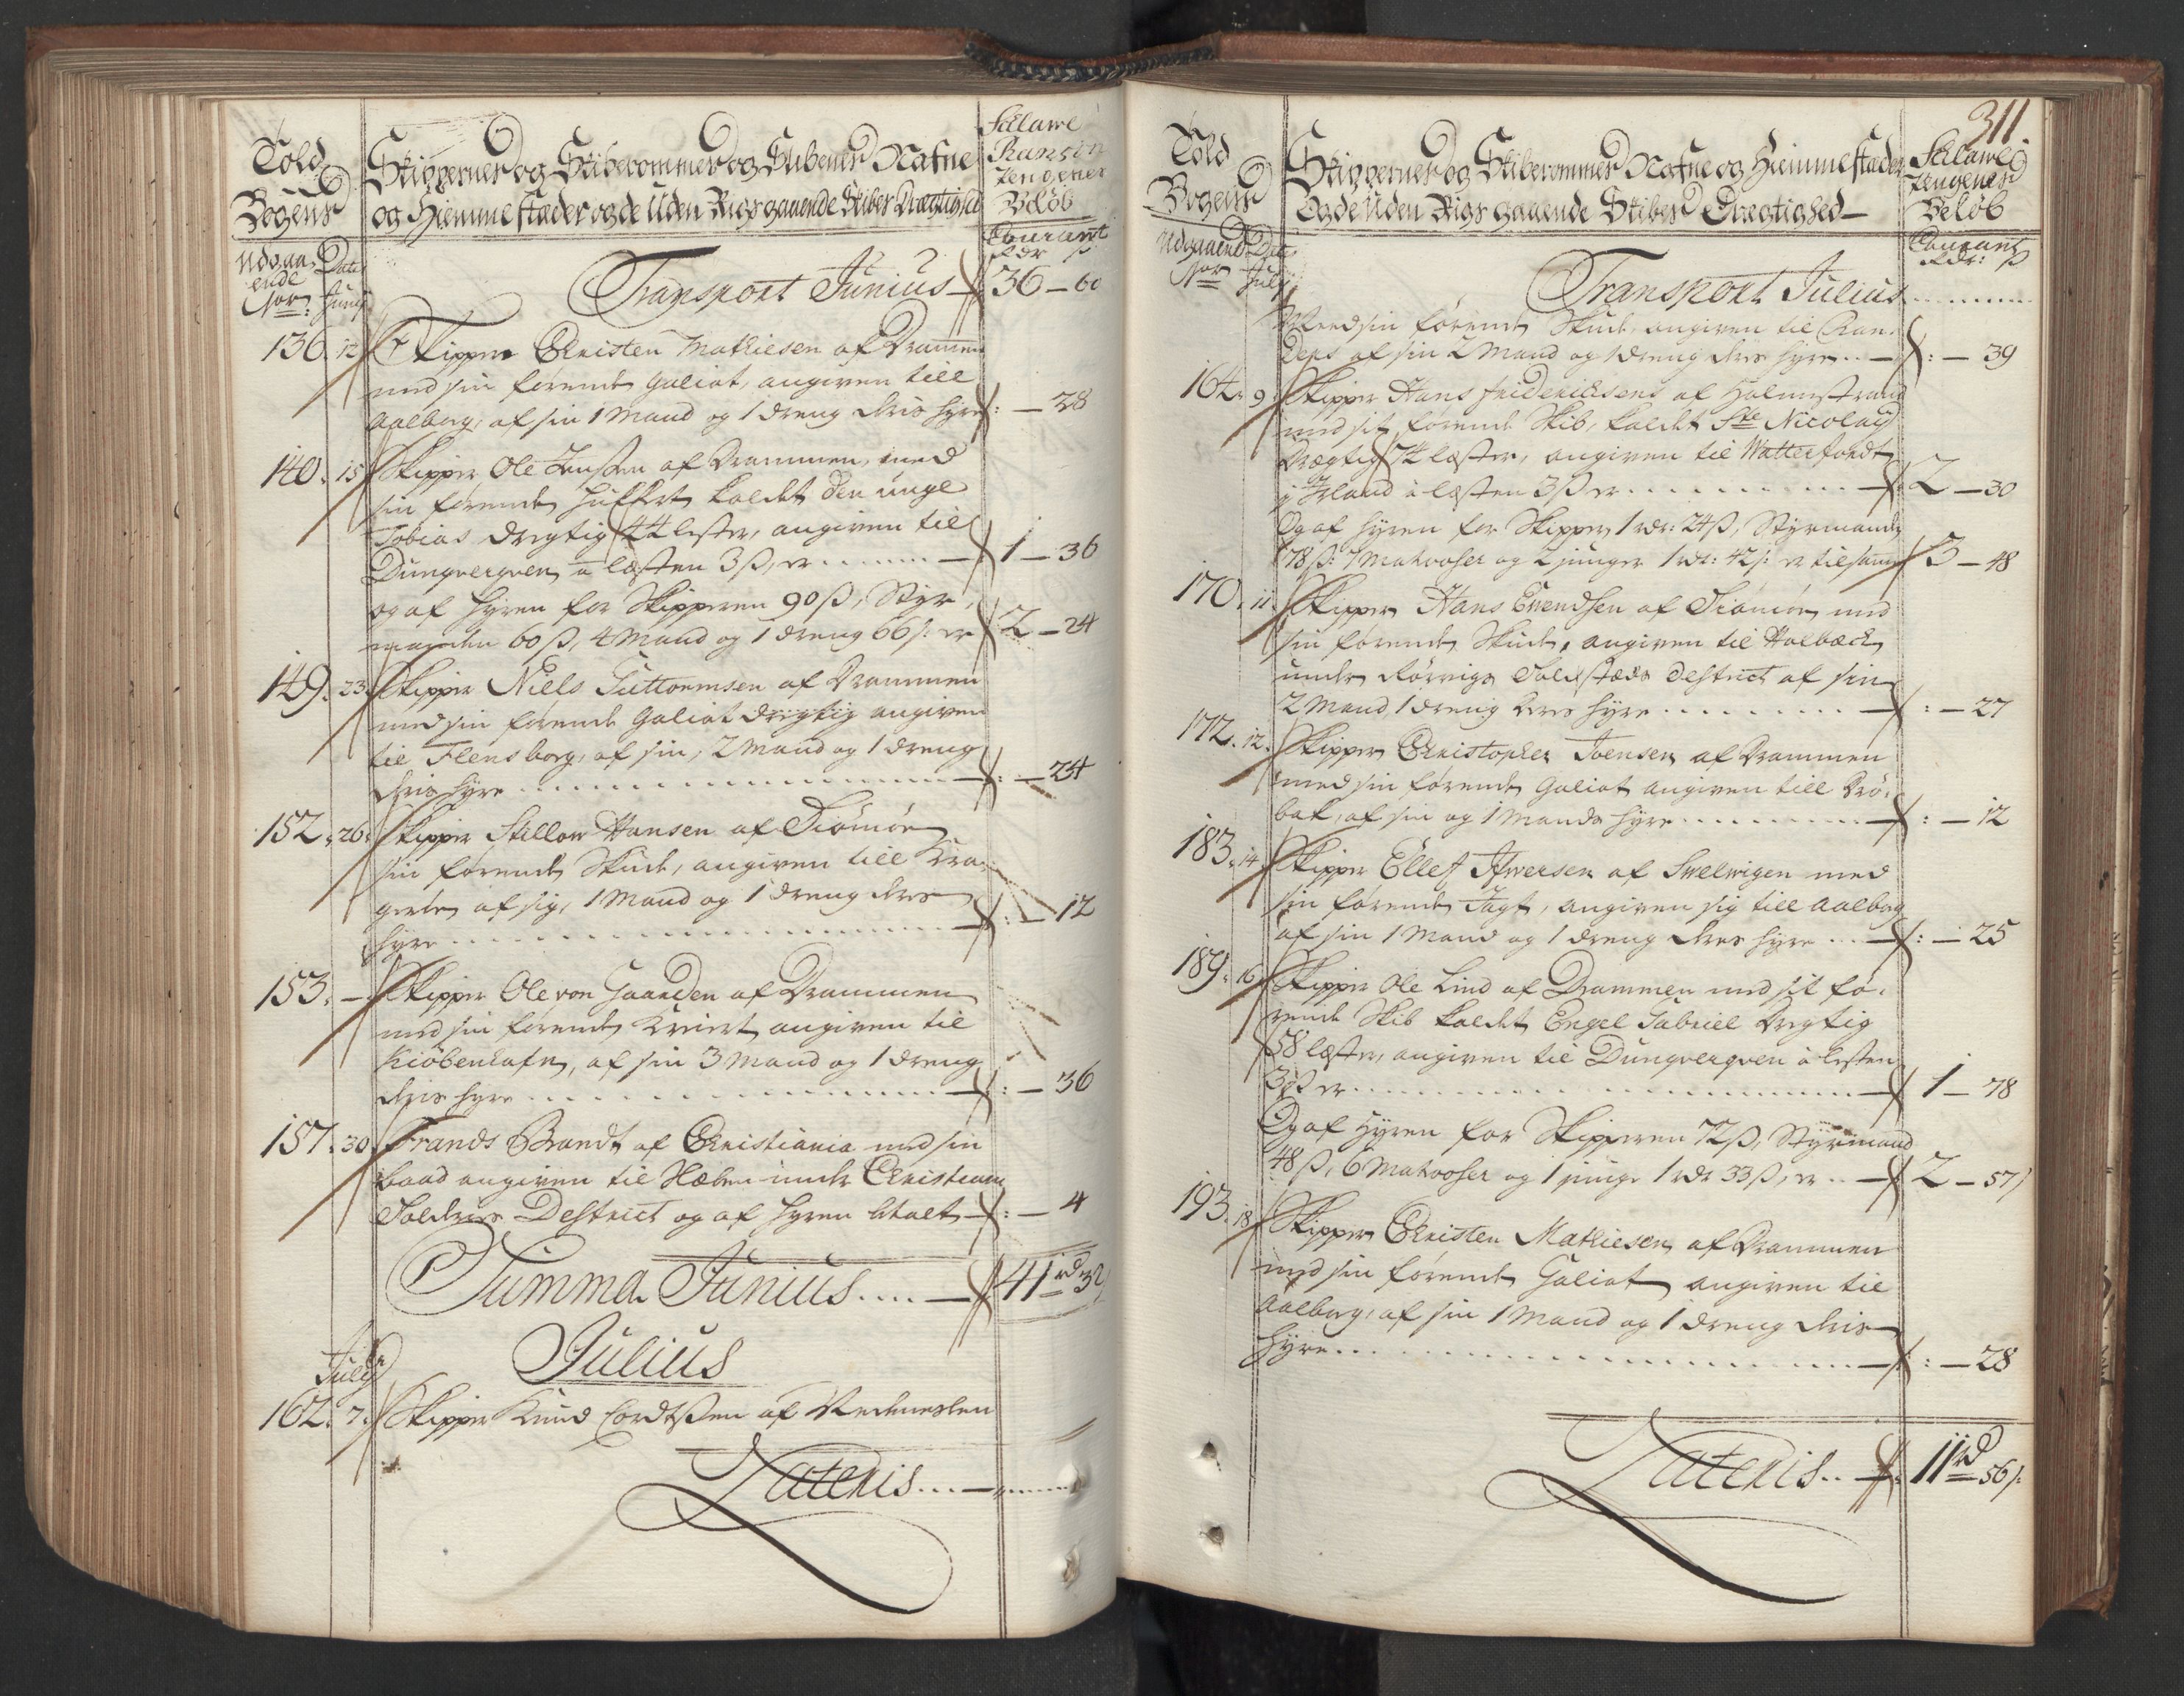 Told
Bogens
Udgaa-
ende
No:
Dato
Juny
Skippernes og Skiberommes og Skibenes Nafne
og Hiemmestæder og de Uden Rigs gaaende Skibes Drægtighed
Sclave
Ranzon
Pengenes
Beløb
Courant
Rdr ß
Transport Junius 36 – 60
136. 12 Skipper Christen Mathiesen af Drammen
med sin førende Galiot, angiven till
Aalborg, af sin 1 Mand og 1 dreng dris hyre : – 28
140. 15 Skipper Ole Jenssen af Drammen, med
sin førende Hukkert kaldet den unge
Tobias drægtig 44 lester, angiven til
Dunqverqven a læsten 3 ß, er ...... 1 – 36
og af Hyren for Skipperen 90 ß, Styr-
manden 60 ß, 4 Mand og 1 dreng 66 ß: er 2 – 24
149. 23. Skipper Niels Guttormsen af Drammen
med sin førende Galiot drægtig angiven
til Flensborg, af sin, 2 Mand og 1 dreng
dris hyre ...... : – 24
152. 26. Skipper Stillow Hansen af Tiömöe
sin førende Skude, angiven till Kra-
gerøe af sig, 1 Mand og 1 dreng dres
hyre ...... : – 12
153. – Skipper Ole von Gaarden af Drammen
med sin førende Kreiert angiven til
Kiöbenhafn, af sin 3 Mand og 1 dreng
dris hyre ...... : – 36
157. 30. Frands Brandt af Christiania med sin
baad angiven til Næben under Christiania
Tolderie Destrict og af Hyren btalt : – 4
Summa Junius .... 41 rd 32
Julius
July
162. 7. Skipper Knud Cordtzen af Nedeneslen
Lateris ......
311
Told
Bogens
Udgaaend
No
Dato
July
Skippernes og Skiberommes Nafne og Hiemmestæder
Og de Uden Rigs gaaende Skibes Drægtighed
Sclawe
Pengenes
Beløb
Courant
Rdr: ß
Transport Julius ......
Med sin førende Skude, angiven til Ran-
ders af sin 2 Mand og 1 dreng dres hyre : – 39
164. 9 Skipper Hans Friderichsens af Holmestrand
med sit førende Skib, kaldet Ste Nicolay
Drægtig 74 læster, angiven til Watterfordt
i Irland a læsten 3 ß er ...... 2 – 30
Og af hyren for Skipper, 1 rdr: 24 ß, Styrmanden
78 ß: 7 Matroser og 2 junger 1 rdr: 42 ß: er tilsamen 3 – 48
170. 11 Skipper Hans Evendsen af Tiömöe med
sin førende Skude, angiven til Holbæck
under Rørvigs Toldstæds destrict af sin
2 Mand, 1 dreng dres hyre ...... : – 27
172. 12. Skipper Christopher Joensen af Drammen
med sin førende Galiot angiven till Drö-
bak, af sin og 1 Mands hyre ...... : – 12
183. 14 Skipper Ellef Iwersen af Swelwigen med
sin førende Jagt, angiven sig till Aalborg
af sin 1 Mand og 1 dreng dres hyre ... : – 25
189. 16 Skipper Ole Lind af Drammen med sit fø-
rende Skib kaldet Engel Gabriel drægtig
58 læster, angiven til Dunqverqven a lesten
3 ß er ...... 1 – 78
Og af Hyren for Skipperen 72 ß, Styrmand
48 ß, 6 Matroser og 1 junge 1 rdr 33 ß, er .. 2 – 57
193. 18 Skipper Christen Mathiesen af Drammen
med sin førende Galiot angiven til
Aalborg, af sin 1 Mand og 1 dreng dris
hyre ...... : – 28
Lateris .. 11 rd 56 ß: